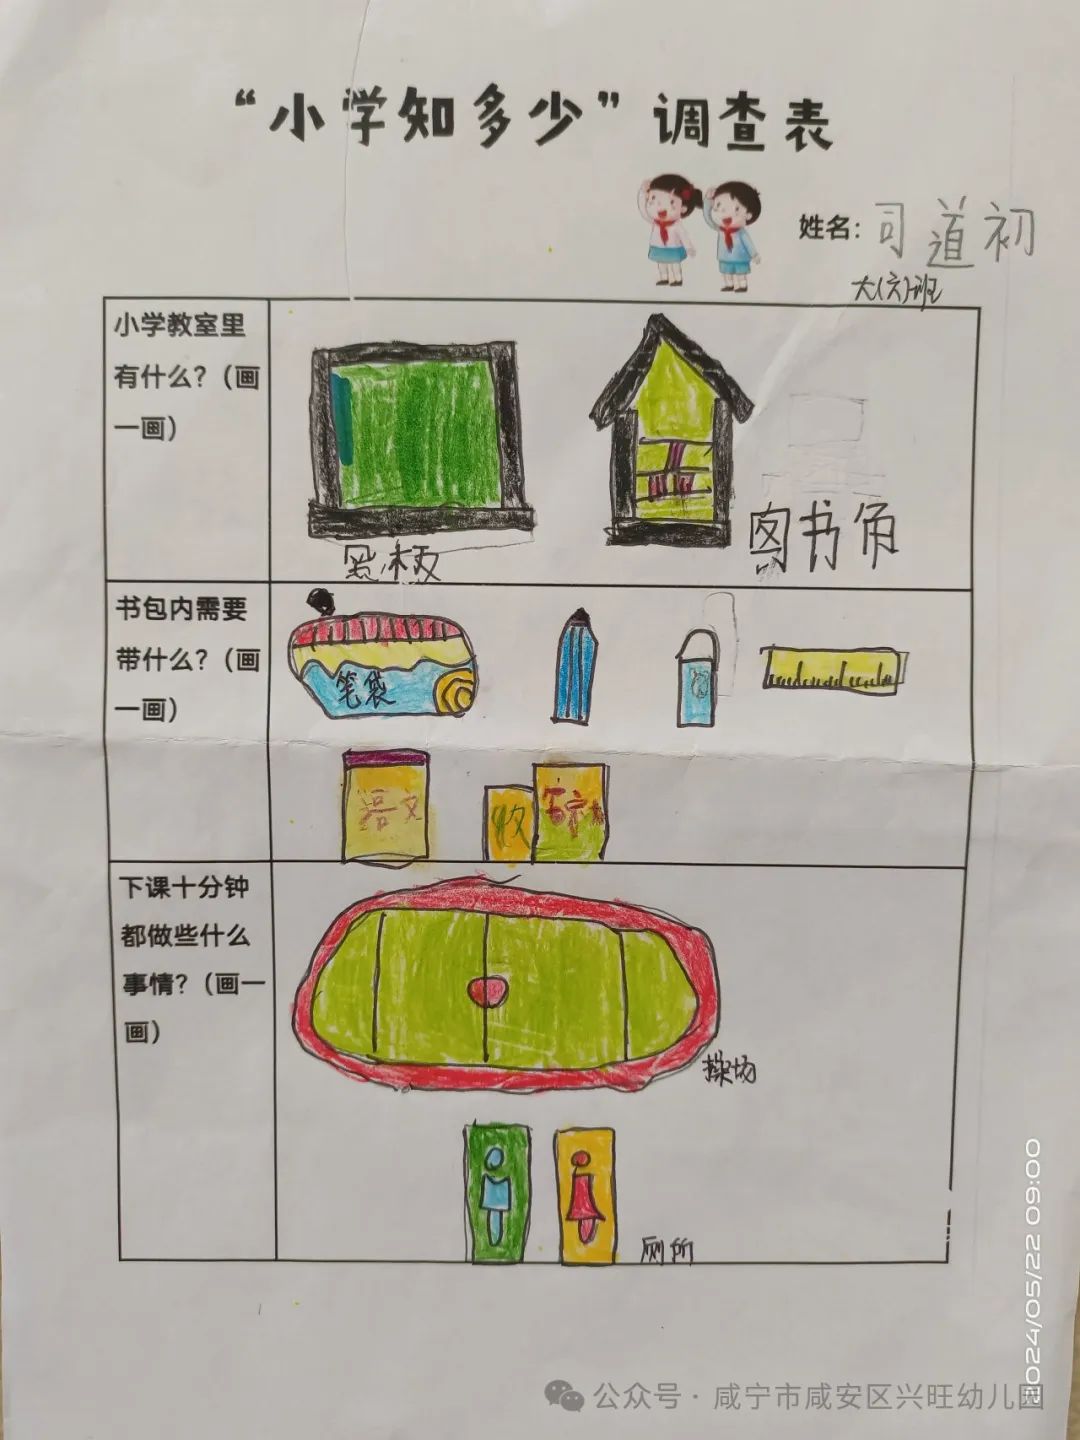 “小学知多少”调查表
姓名：司道初
大（六）班
小学教室里
有什么？（画
一画）
黑板
图书角
书包内需要
带什么？（画
一画）
笔袋
语文
下课十分钟
都做些什么
事情？（画一
画）
操场
厕所
2024/05/22 09:00
公众号·咸宁市咸安区兴旺幼儿园